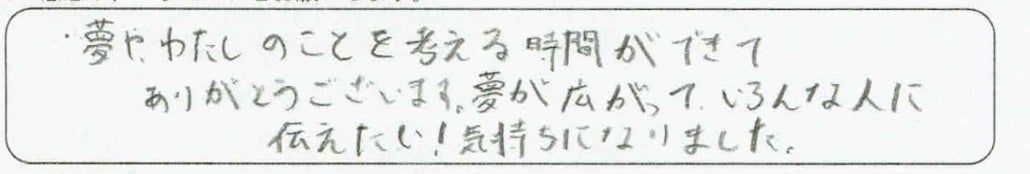 ・夢や、わたしのことを考える時間ができて
ありがとうございます。夢が広がって、いろんな人に
伝えたい!気持ちになりました。